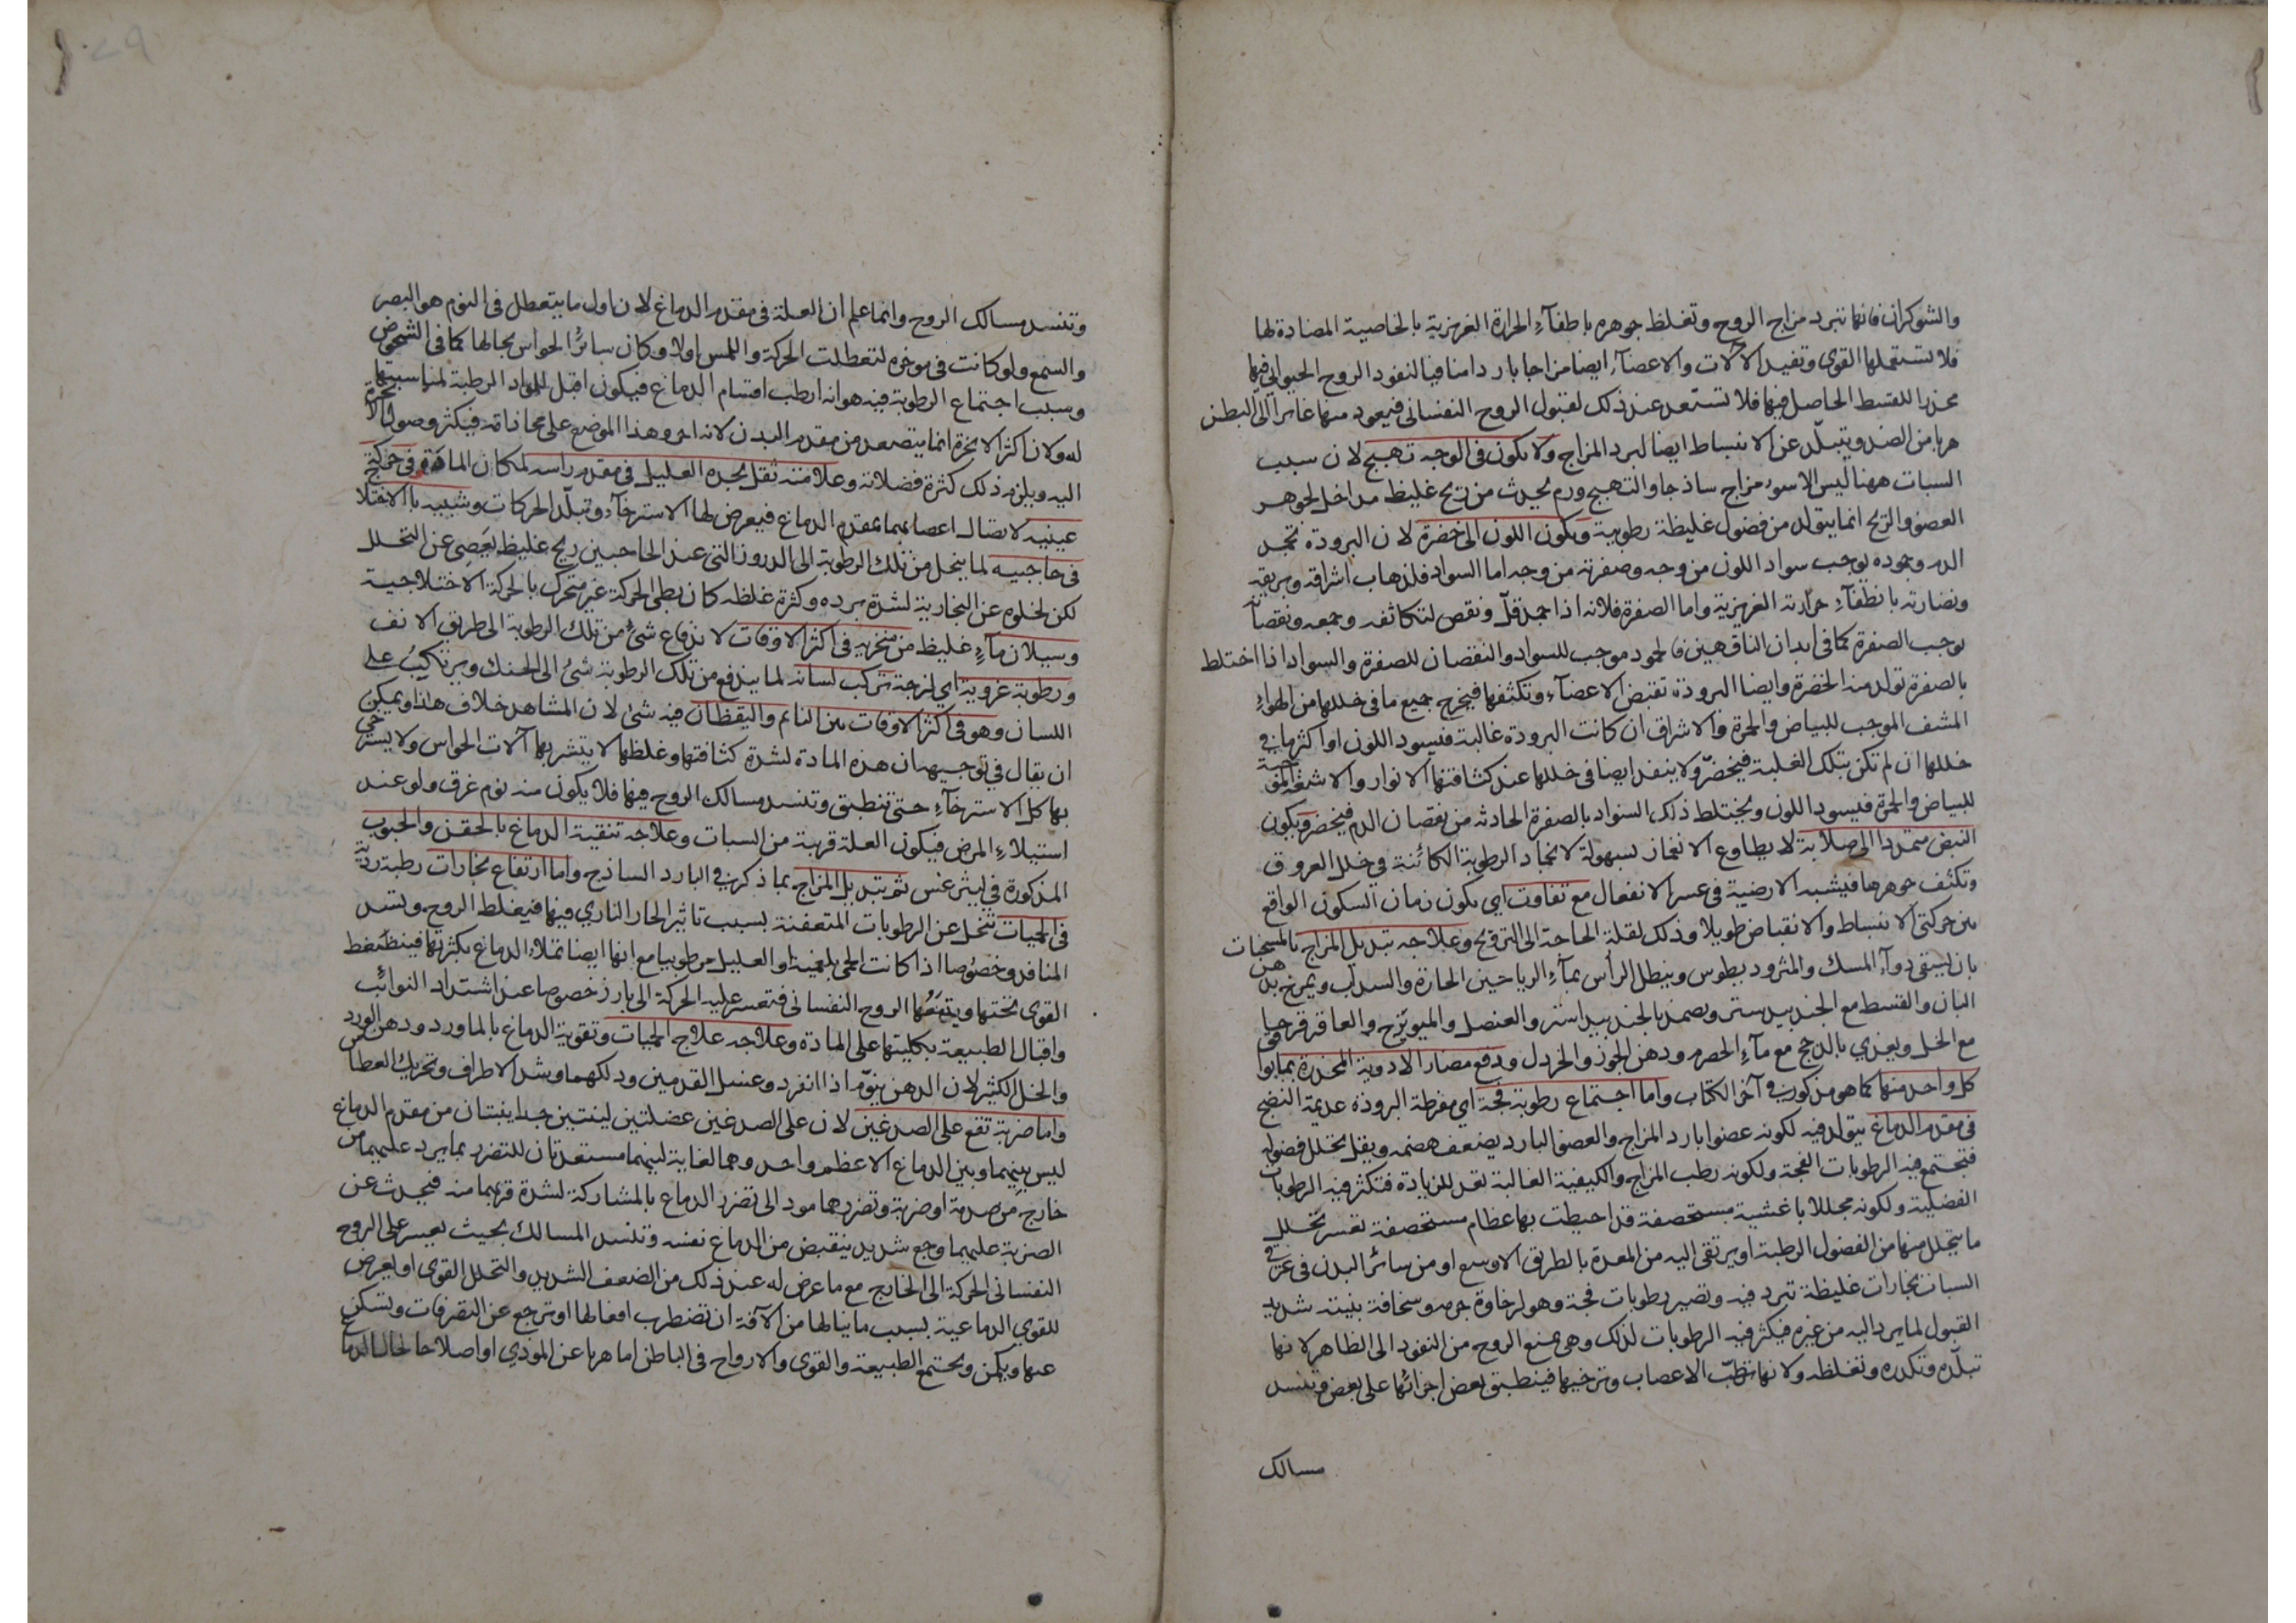 والشوكران فانها تبرد مزاج الروح وتغلظ جوهره باطفآء الحرارة الغريزية بالخاصية المضادة لها
فلا تستعملها القوى وتفيد الالات والاعضآء ايضا مزاجا باردا منافيا لنفوذ الروح الحيواني فيها
مخدرا للقسط الحاصل فيها فلا تستعد عند ذلك لقبول الروح النفسانى فيعود منها غايرا الى البطن
هربا من الضد ويتبلّد عن الانبساط ايضا لبرد المزاج ولا يكون فى الوجه تهبج لان سبب
السبات ههنا ليس الا سوء مزاج ساذجا والتهبج ورم يحدث من ريح غليظ مداخل لجوهر
العضو والريح انما يتولد من فضول غليظة رطوبية ويكون اللون الى خضرة لان البرودة تجمد
الدم وجموده يوجب سواد اللون من وجه وصفرته من وجه اما السواد فلذهاب اشراقه وبريقه
ونضارته بانطفآء حرارته الغريزية واما الصفرة فلانه اذا جمد قلّ ونقص لتكاثفه وجمعه ونقصانه
يوجب الصفرة كما فى ابدان الناقهين فالجمود موجب للسواد والنقصان للصفرة والسواد اذا اختلط
بالصفرة تولد منه الخضرة وايضا البرودة تقبض الاعضآء وتكثفها فيخرج جميع ما فى خللها من الهوآء
المشف الموجب للبياض والحمرة والاشراق ان كانت البرودة غالبة فيسود اللون او اكثر ما فى
خللها ان لم تكن بتلك الغلبة فيخضرّ ولا ينفذ ايضا فى خللها عند كثافتها الانوار والاشعة الموجبة
للبياض والحمرة فيسود اللون ويختلط ذلك السواد بالصفرة الحادثه من نقصان الدم فيخضر ويكون
النبض متمددا الى صلابة لا يطاوع الانغماز بسهولة لانجماد الرطوبة الكائنة في خلل العروق
وتكثف جوهرها فيشبه الارضية فى عسر الانفعال مع تفاوت اي يكون زمان السكون الواقع
بين حركتى الانبساط والانقباض طويلا وذلك لقلة الحاجة الى الترويح وعلاجه تبديل المزاج بالمسخنات
بان يسقى دوآء المسك والمثروديطوس وينطل الرأس بمآء الرياحين الحارة والسداب ويمرخ بدهن
البان والقسط مع الجندبيدستر ويضمد بالجندبيدستر والعنصل والميويزج والعاقرقرحا
مع الخل ويغذي بالدجج مع مآء الحصرم ودهن الجوز والخردل ودفع مضار الادوية المخدرة بما يوافق
كل واحد منها كما هو مذكور في آخر الكتاب واما اجتماع رطوبة فجة اي مفرطة البرودة عديمة النضج
فى مقدم الدماغ تتولد فيه لكونه عضوا بارد المزاج والعضو البارد يضعف هضمه ويقل تحلل فضوله
فتجتمع فيه الرطوبات الفجة ولكونه رطب المزاج والكيفية الغالبة تعد للزيادة فتكثر فيه الرطوبات
الفضلية ولكونه مجللا باغشية مستحصفة قد احيطت بها عظام مستحصفة تعسر تحلل
ما يتحلل منها من الفضول الرطبة او يرتقى اليه من المعدة بالطريق الاوسع او من سائر البدن فى غير
السبات بخارات غليظة تبرد فيه وتصير رطوبات فجة وهو لرخاوة جرمه وسخافة بنيته شديد
القبول لما يرد اليه من غيره فيكثر فيه الرطوبات لذلك وهى تمنع الروح من النفوذ الى الظاهر لانها
تبلّده وتكدره وتغلظه ولانها ترطّب الاعصاب وترخيها فينطبق بعض اجزائها على بعض وتنسد
مسالك
وتنسد مسالك الروح وانما علم ان العلة فى مقدم الدماغ لان اول ما يتعطل فى النوم هو البصر
والسمع ولو كانت فى موخره لتعطلت الحركة واللمس اولا وكان سائر الحواس بحالها كما فى الشخوص
وسبب اجتماع الرطوبة فيه هو انه ارطب اقسام الدماغ فيكون اقبل للمواد الرطبة لمناسبتها
له ولان اكثر الابخرة انما يتصعد من مقدم البدن لانه احر وهذا الموضع على محاذاته فيكثر وصول الابخرة
اليه ويلزم ذلك كثرة فضلاته وعلامته ثقل يجده العليل فى مقدم راسه لمكان المادة وفى حركة
عينيه لاتصال اعصابهما بمقدم الدماغ فيعرض لها الاسترخآء وتبلّد الحركات وشبيه بالاختلاج
فى حاجبيه لما ينحل من تلك الرطوبة الى الدروز التى عند الحاجبين ريح غليظ يعصى عن التحلل
لكن لخلوه عن البخارية لشدة برده وكثرة غلظه كان بطى الحركة غير متحرك بالحركة الاختلاجية
وسيلان مآء غليظ من منخريه فى اكثر الاوقات لاندفاع شئ من تلك الرطوبة الى طريق الانف
ورطوبة غروية اي لزجة تركب لسانه لما يندفع من تلك الرطوبة شئ الى الحنك ويرتكب على
اللسان وهو فى اكثر الاوقات بين النائم واليقظان فيه شئ لان المشاهد خلاف هذا ويمكن
ان يقال في توجيهه ان هذه المادة لشدة كثافتها وغلظها لا يتشربها آلات الحواس ولا يسترخي
بها كل الاسترخآء حتى تنطبق وتنسد مسالك الروح فيها فلا يكون منه نوم غرق ولو عند
استيلآء المرض فيكون العلة قريبة من السبات وعلاجه تنقية الدماغ بالحقن والحبوب
المذكورة في ليثرغس ثم تبديل المزاج بما ذكر في البارد الساذج واما ارتفاع بخارات رطبة ردية
فى الحميات تنحل عن الرطوبات المتعفنة بسبب تاثير الحار الناري فيها فيغلظ الروح وينسد
المنافذ وخصوصا اذا كانت الحمى بلغمية او العليل مرطوبا مع انها ايضا تملاء الدماغ بكثرتها فينضغط
القوى تحتها ويتقعها الروح النفسانى فتعسر عليه الحركة الى بارز خصوصا عند اشتداد النوائب
واقبال الطبيعة بكليتها على المادة وعلاجه علاج الحميات وتقوية الدماغ بالماورد ودهن الورد
والخل الكثير لان الدهن ينوّم اذا انفرد وغسل القدمين ودلكهما وشد الاطراف وتحريك العطاس
واما ضربة تقع على الصدغين لان على الصدغين عضلتين لينتين جدا ينبتان من مقدم الدماغ
ليس بينهما وبين الدماغ الا عظم واحد وهما لغاية لينهما مستعدتان للتضرر بما يرد عليهما من
خارج من صدمة او ضربة وتضررهما مود الى تضرر الدماغ بالمشاركة لشدة قربهما منه فيحدث عن
الضربة عليهما وجع شديد ينقبض من الدماغ نفسه وتنسد المسالك بحيث يعسر على الروح
النفسانى الحركة الى الخارج مع ما عرض له عند ذلك من الضعف الشديد والتحلل القوى او يعرض
للقوي الدماغية بسبب ما ينالها من الآفة ان تضطرب افعالها او ترجع عن التصرفات وتسكن
عنها ويكمن ويجتمع الطبيعة والقوى والارواح فى الباطن اما هربا عن الموذي او اصلاحا لحال الدماغ